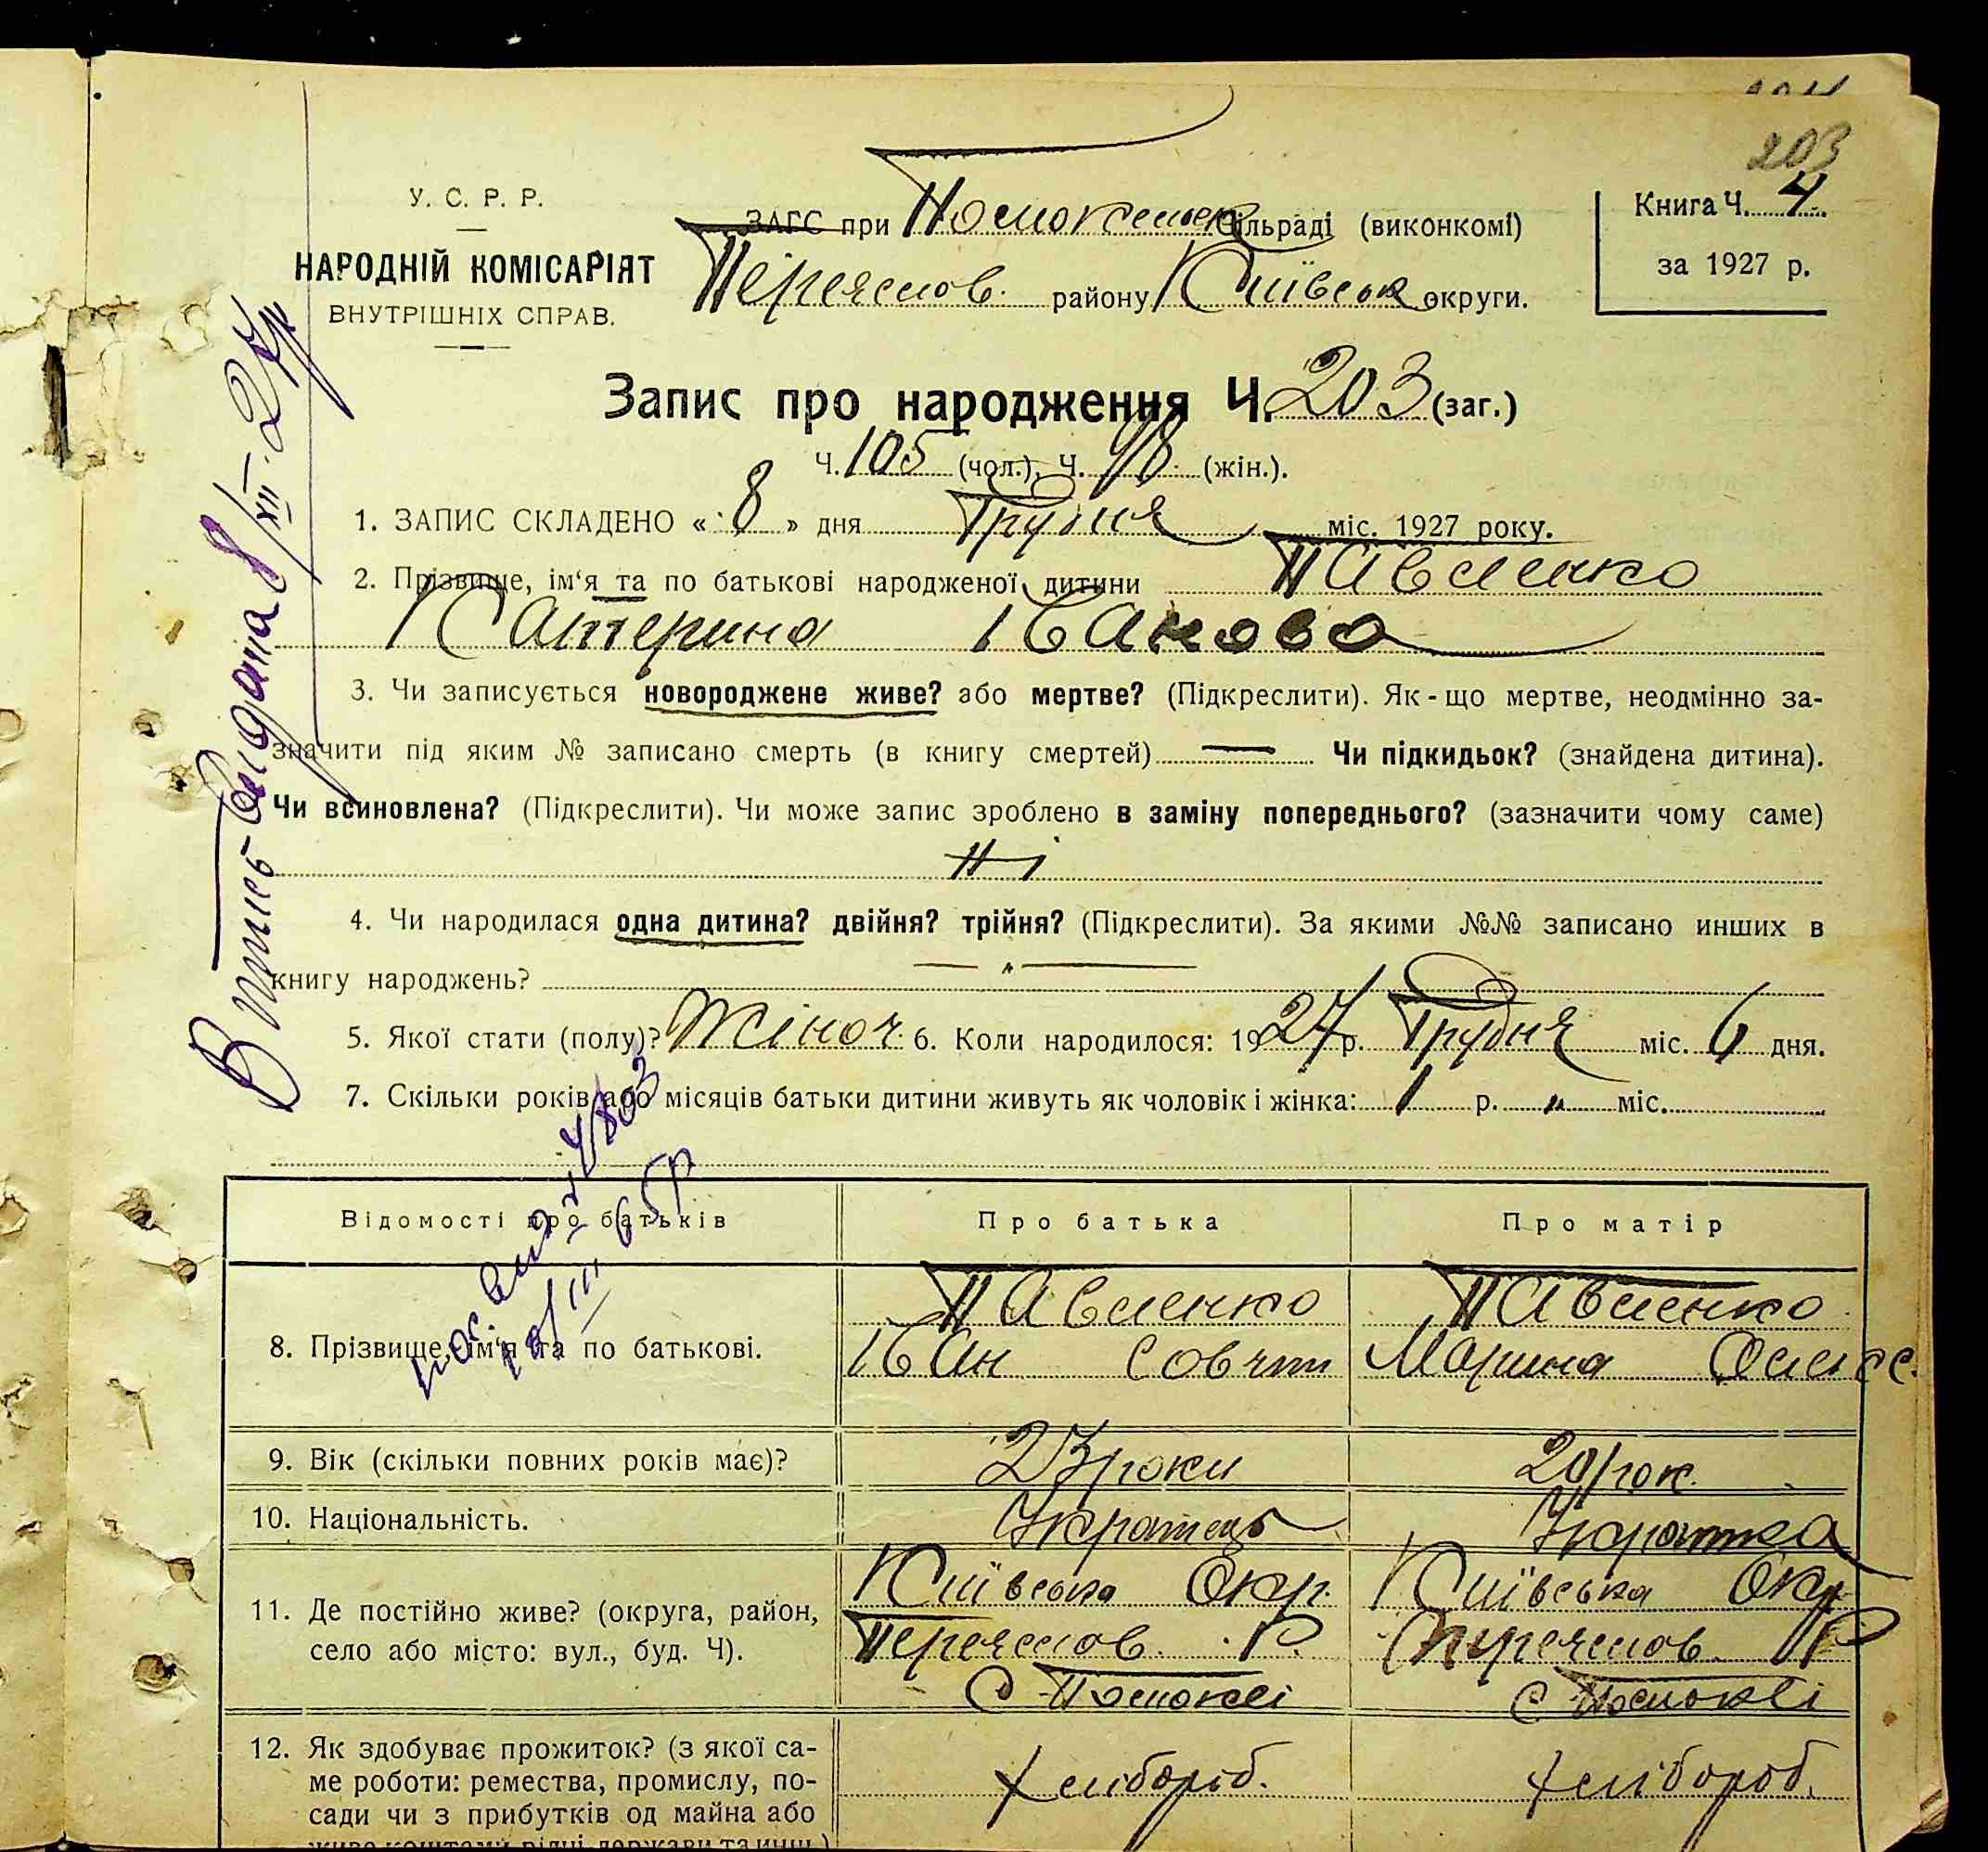 203
У. С. Р. Р.
НАРОДНІЙ КОМІСАРІЯТ
ВНУТРІШНІХ СПРАВ.
ЗАГС при Помоксельск сільраді (виконкомі)
Переяслов. району Київськ округи.
Книга Ч. 4.
за 1927 р.
Запис про народження Ч. 203 (заг.)
Ч. 105 (чол.), Ч. 98 (жін.).
1. ЗАПИС СКЛАДЕНО « 8 » дня Грудня міс. 1927 року.
2. Прізвище, ім‘я та по батькові народженої дитини Павленко
Катерина Іванова
3. Чи записується новороджене живе? або мертве? (Підкреслити). Як-що мертве, неодмінно за-
значити під яким № записано смерть (в книгу смертей) — Чи підкидьок? (знайдена дитина).
Чи всиновлена? (Підкреслити). Чи може запис зроблено в заміну попереднього? (зазначити чому саме)
Ні
4. Чи народилася одна дитина? двійня? трійня? (Підкреслити). За якими №№ записано инших в
книгу народжень? — „ —
5. Якої стати (полу)? Жіноч. 6. Коли народилося: 1927 р. Грудня міс. 6 дня.
7. Скільки років або місяців батьки дитини живуть як чоловік і жінка: 1 р. „ міс.
Відомості про батьків Про батька Про матір
8. Прізвище, ім‘я та по батькові. Павленко Павленко
Іван Совчт Марина Олекс.
9. Вік (скільки повних років має)? 23 роки 20 рок.
10. Національність. Українець Українка
11. Де постійно живе? (округа, район,
село або місто: вул., буд. Ч).
Київська Окр. Київська Окр
Переяслов. Р. Переяслов. Р
С Помоклі С Помоклі
12. Як здобуває прожиток? (з якої са-
ме роботи: ремества, промислу, по-
сади чи з прибутків од майна або
живе коштами рідні, держави та инш.)
хлібороб. хлібороб.
Витпис видана 8/XII-27р